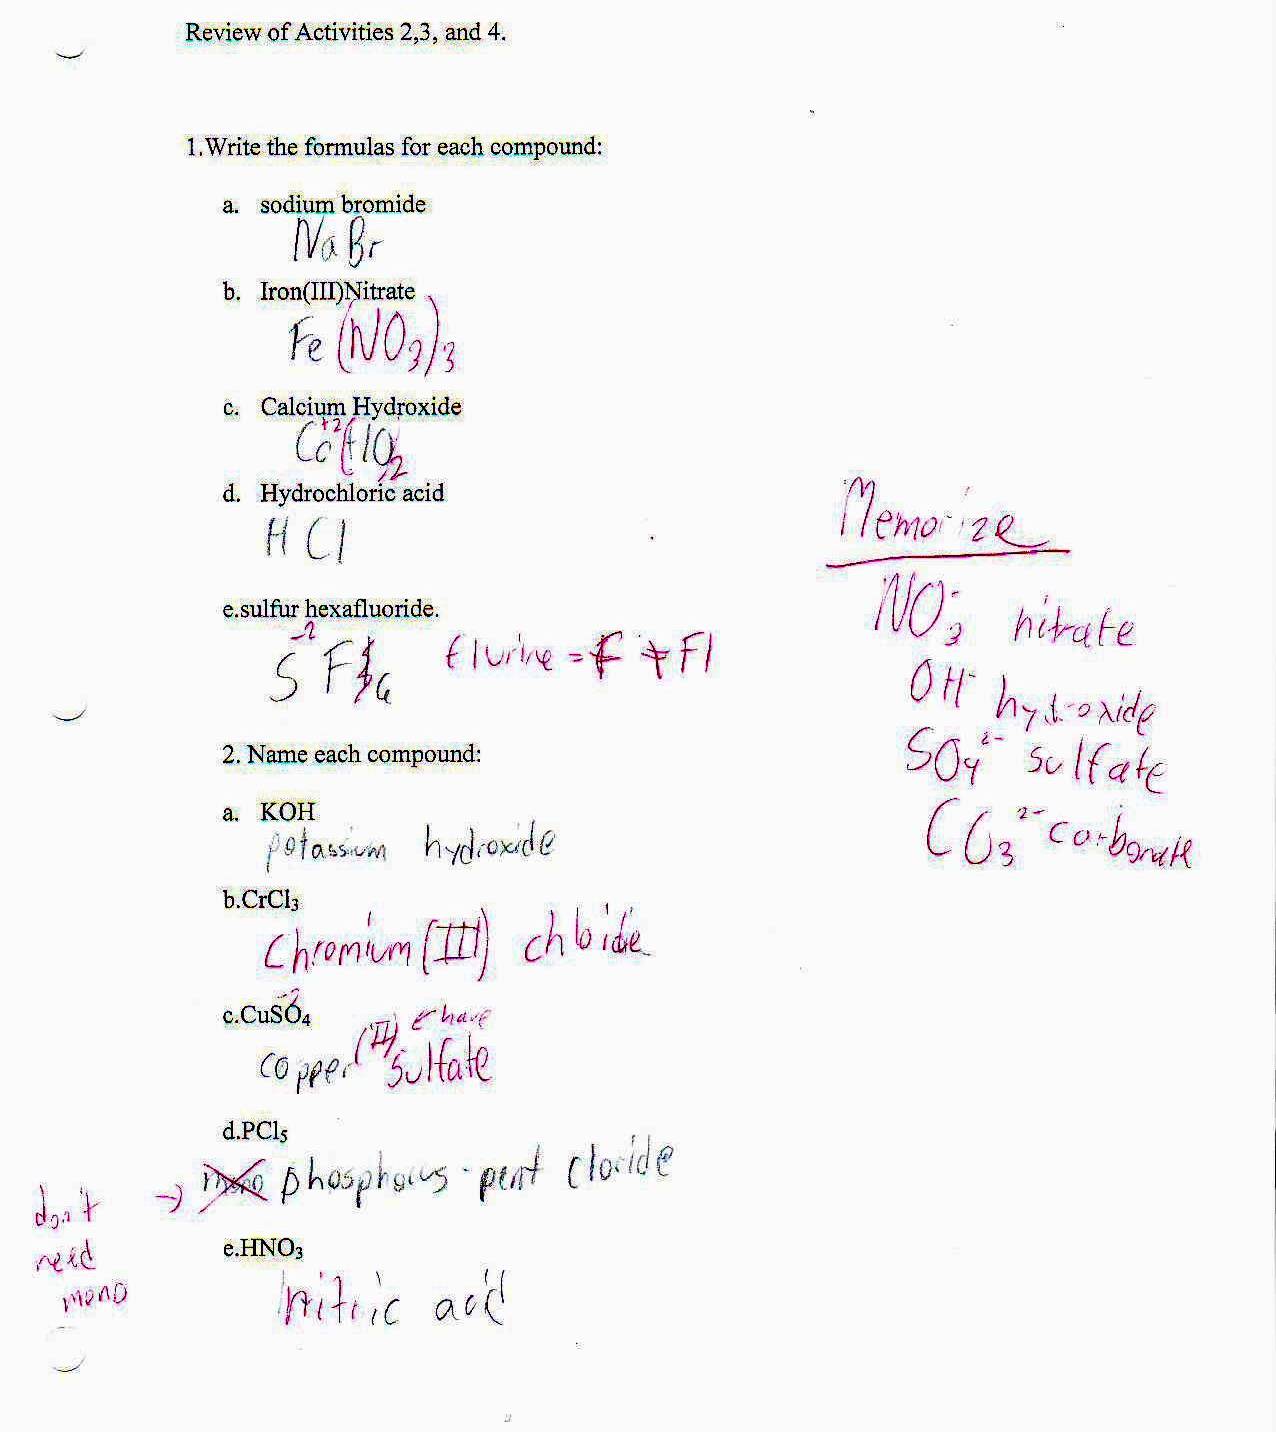 Review of Activities 2,3, and 4.
1.Write the formulas for each compound:
a. sodium bromide
NaBr
b. Iron(III)Nitrate
Fe(NO3)3
c. Calcium Hydroxide
+2
d. Hydrochloric acid
HCl
e.sulfur hexafluoride.
-2
SF6 flurine = F ≠ Fl
Memorize
NO3- nitrate
OH- hydroxide
SO4 2- sulfate
CO3 2- carbonate
2. Name each compound:
a. KOH
potassium hydroxide
b.CrCl3
Chromium (III) chloride
-2
c.CuSO4
copper (II) sulfate
have
d.PCl5
mono phosphorus pent cloride
don't
need
mono
e.HNO3
nitric acid